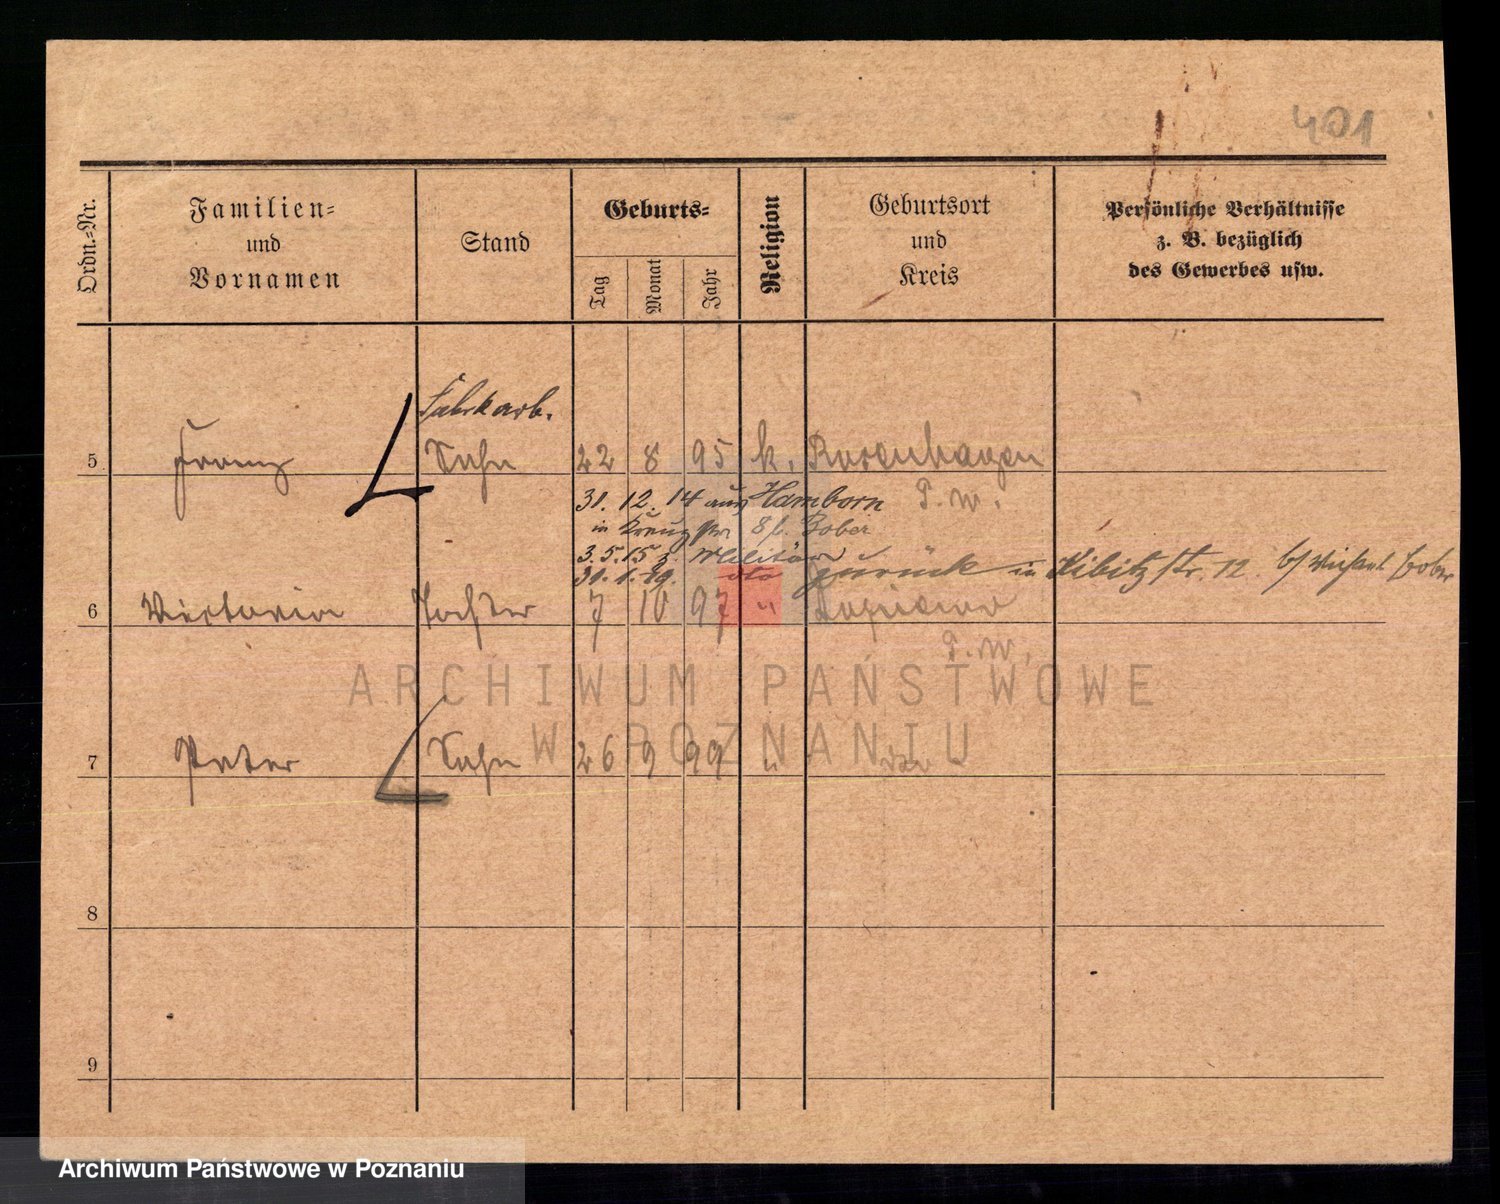 401
Ordn.-Nr.
Familien-
und
Vornamen
Stand
Geburts-
Tag
Monat
Jahr
Religion
Geburtsort
und
Kreis
Persönliche Verhältnisse
z. B. bezüglich
des Gewerbes usw.
Fabrikarb.
5 Franz Sohn 22 8 95 k. Rosenhagen
P. W.
31. 12. 14 aus Hamborn
in Kreuzstr 8 b. Bober
3.5.15 z. Militär
31.1.19. zurück in Kibitzstr. 12 b/ Bober
6 Victoria Tochter 7 10 97 "
P. W.
7 Peter Sohn 26 9 99 "
8
9
ARCHIWUM PAŃSTWOWE
W POZNANIU
Archiwum Państwowe w Poznaniu